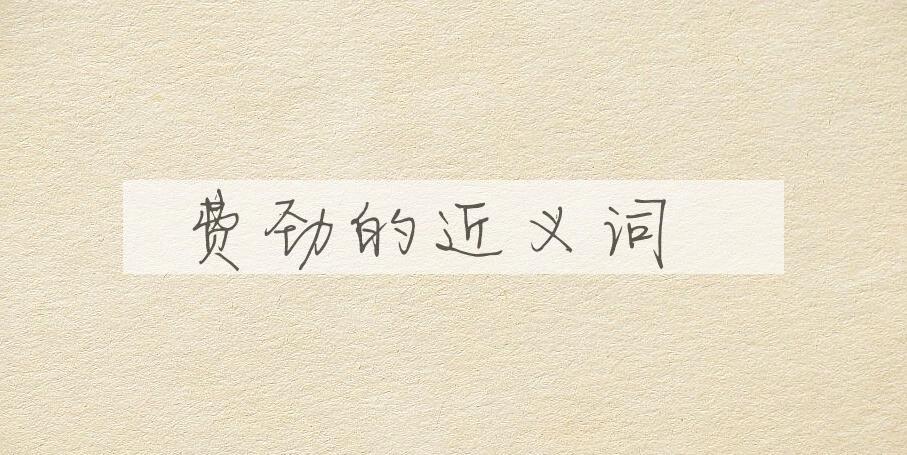 费劲的近义词